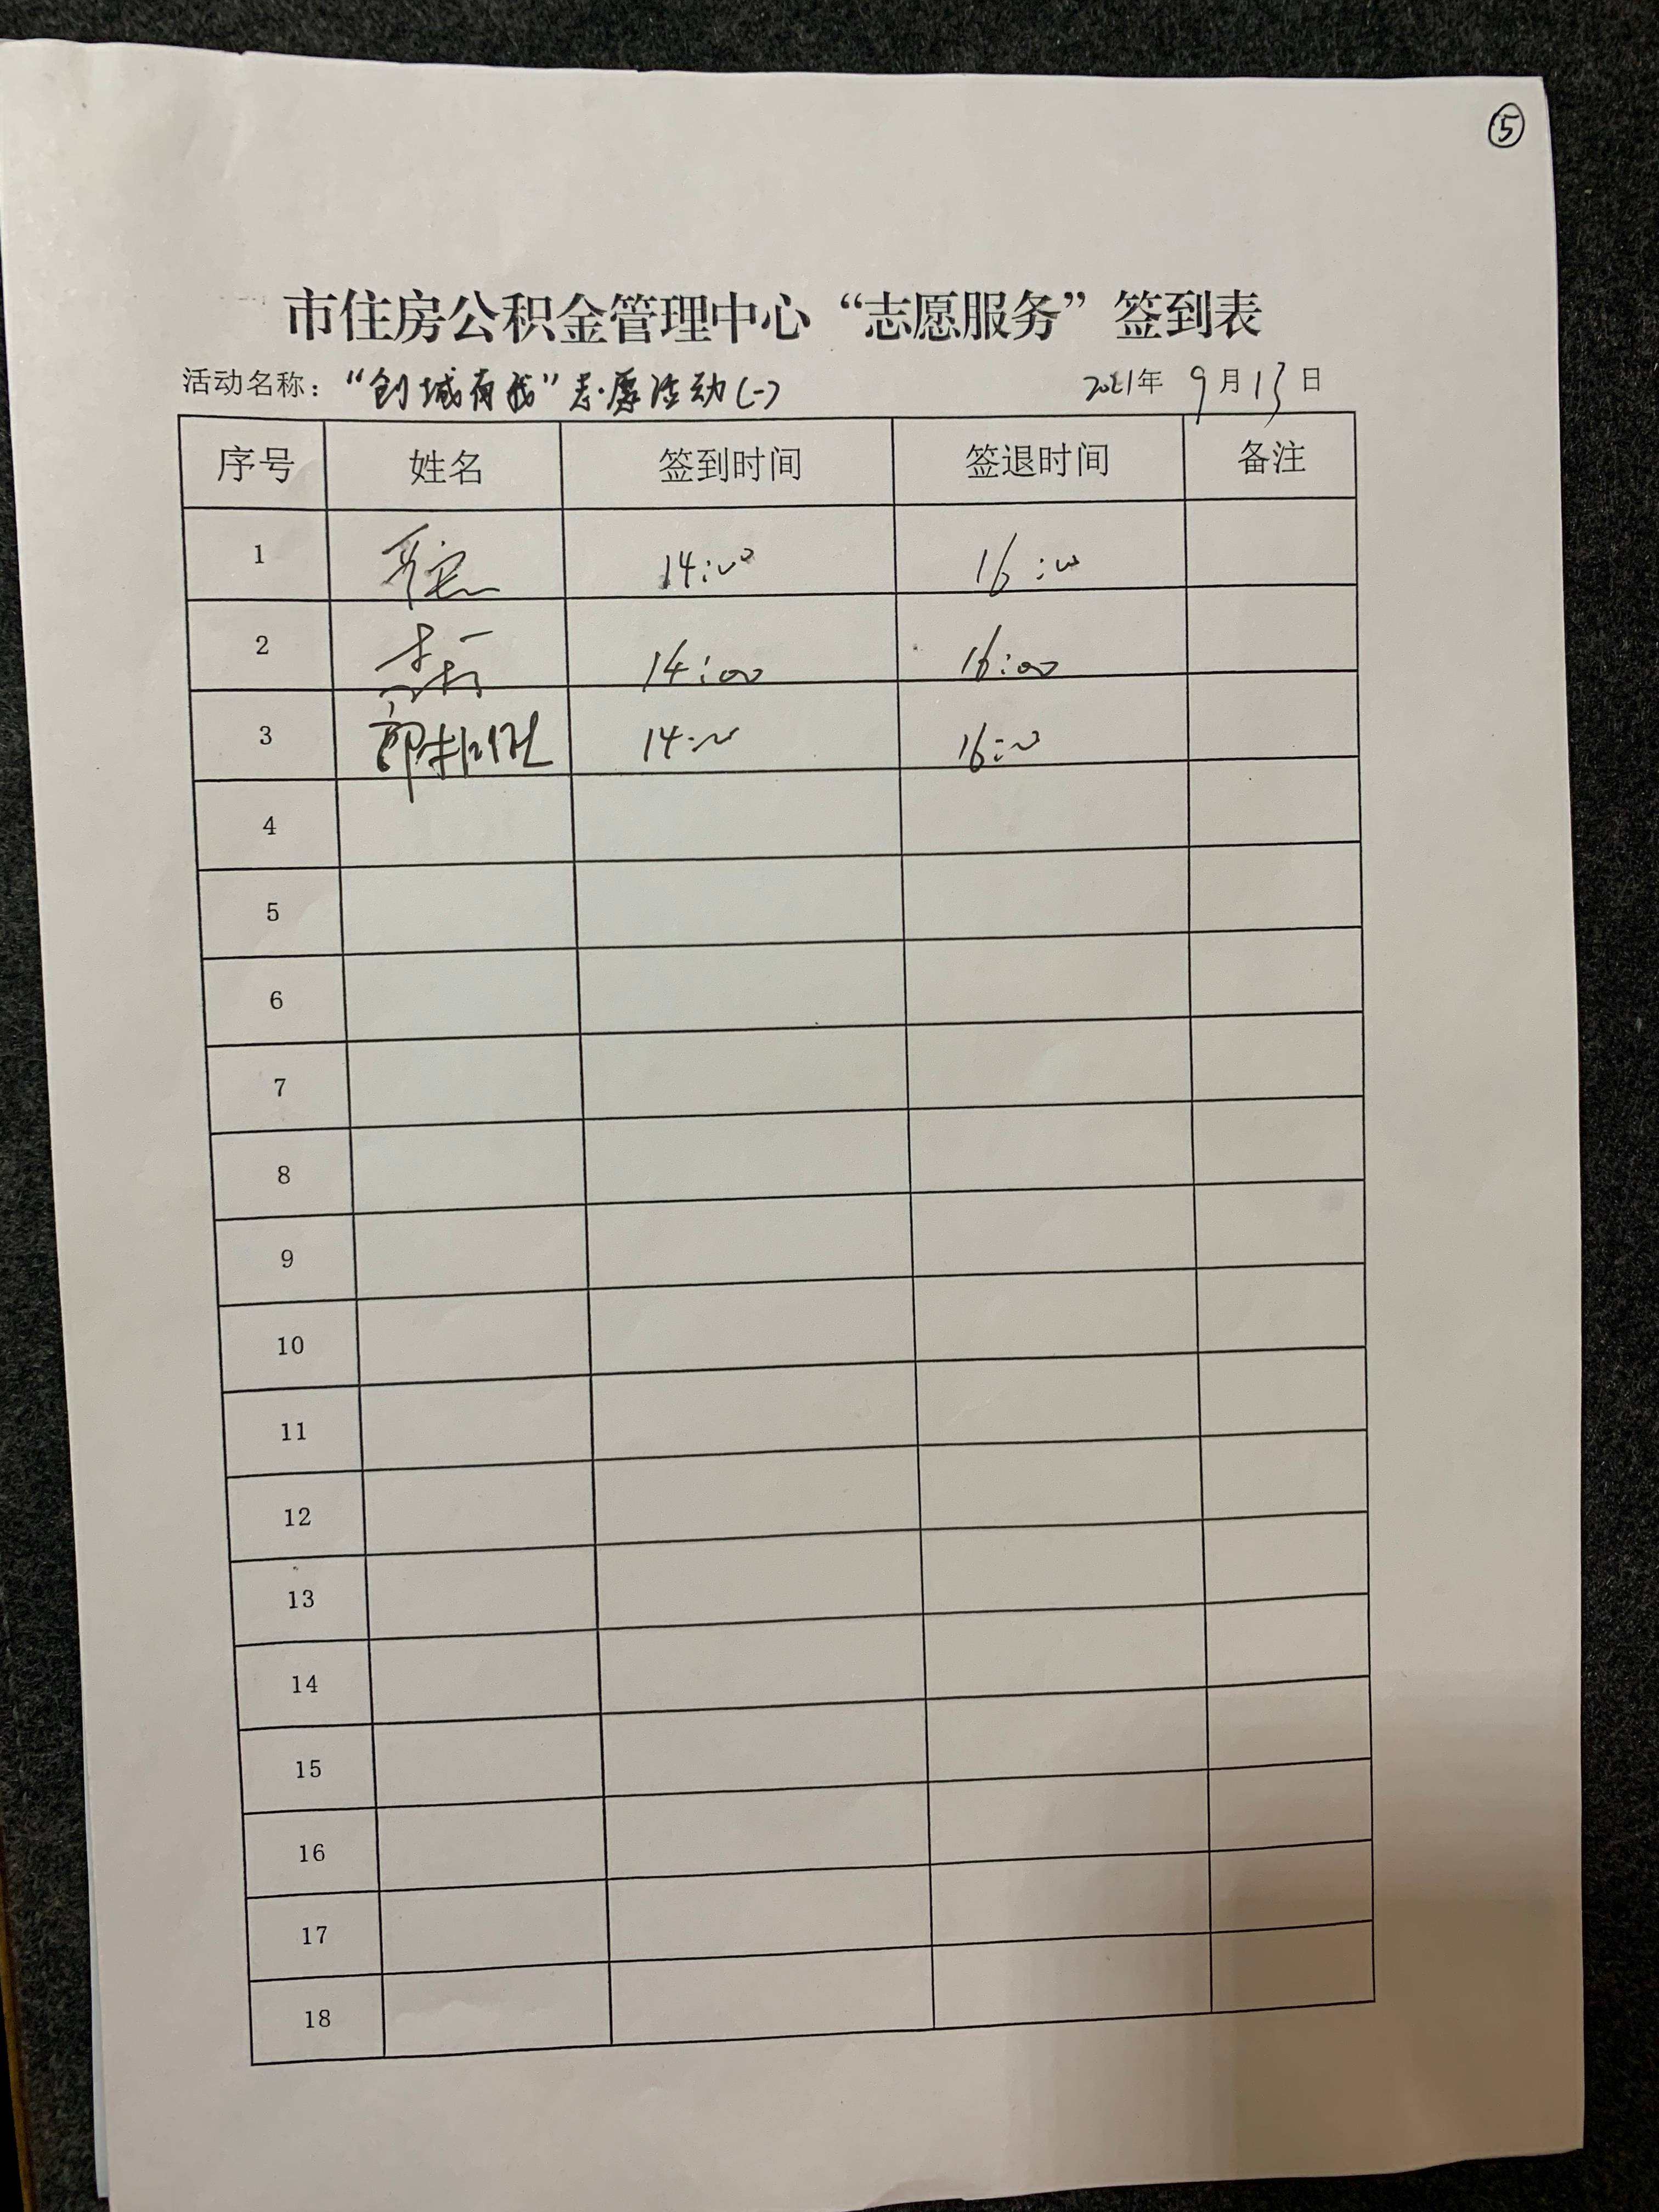 ⑤
市住房公积金管理中心“志愿服务”签到表
活动名称：“创城有我”志愿活动(一) 2021年 9月13日
序号 姓名 签到时间 签退时间 备注
1 14:00 16:00
2 14:00 16:00
3 14:00 16:00
4
5
6
7
8
9
10
11
12
13
14
15
16
17
18